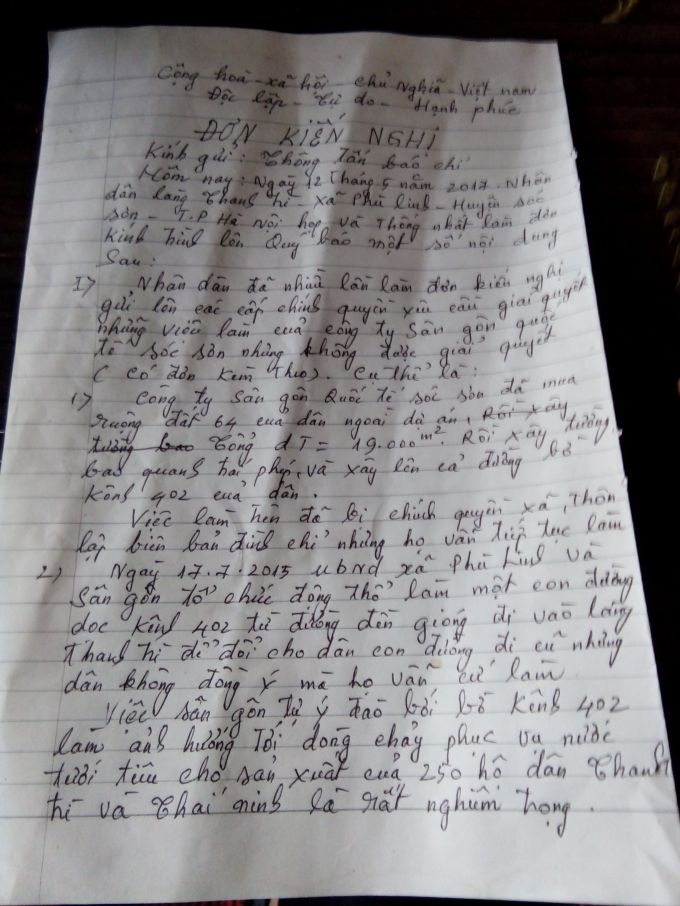 Cộng hoà - xã hội - chủ nghĩa - Việt nam
Độc lập - Tự do - Hạnh phúc
ĐƠN KIẾN NGHỊ
Kính gửi: Thông tấn báo chí
Hôm nay: Ngày 12 Tháng 5 năm 2017. Nhân
dân làng Thanh trì - xã Phù linh - Huyện sóc
sơn - T.P Hà Nội họp và thống nhất làm đơn
kính trình lên Quý báo một số nội dung
Sau:
I) Nhân dân đã nhiều lần làm đơn kiến nghị
gửi lên các cấp chính quyền yêu cầu giải quyết
những việc làm của công ty Sân gôn quốc
tế sóc sơn nhưng không được giải quyết
( có đơn kèm theo). Cụ thể là:
1) Công ty Sân gôn Quốc tế sóc sơn đã mua
ruộng đất 64 của dân ngoài dự án, Rồi xây
tường bao Tổng dT = 19.000m² Rồi xây tường
bao quanh trái phép, và xây lên cả đường bờ
kênh 402 của dân.
Việc làm trên đã bị chính quyền xã, thôn
lập biên bản đình chỉ nhưng họ vẫn tiếp tục làm
2) Ngày 17.7.2015 UBND xã Phù Linh và
Sân gôn tổ chức động thổ làm một con đường
dọc kênh 402 từ đường đền gióng đi vào làng
Thanh trì để đổi cho dân con đường đi cũ nhưng
dân không đồng ý mà họ vẫn cứ làm
Việc sân gôn tự ý đào bới bờ kênh 402
làm ảnh hưởng tới dòng chảy phục vụ nước
tưới tiêu cho sản xuất của 250 hộ dân Thanh
trì và Thái ninh là rất nghiêm trọng.